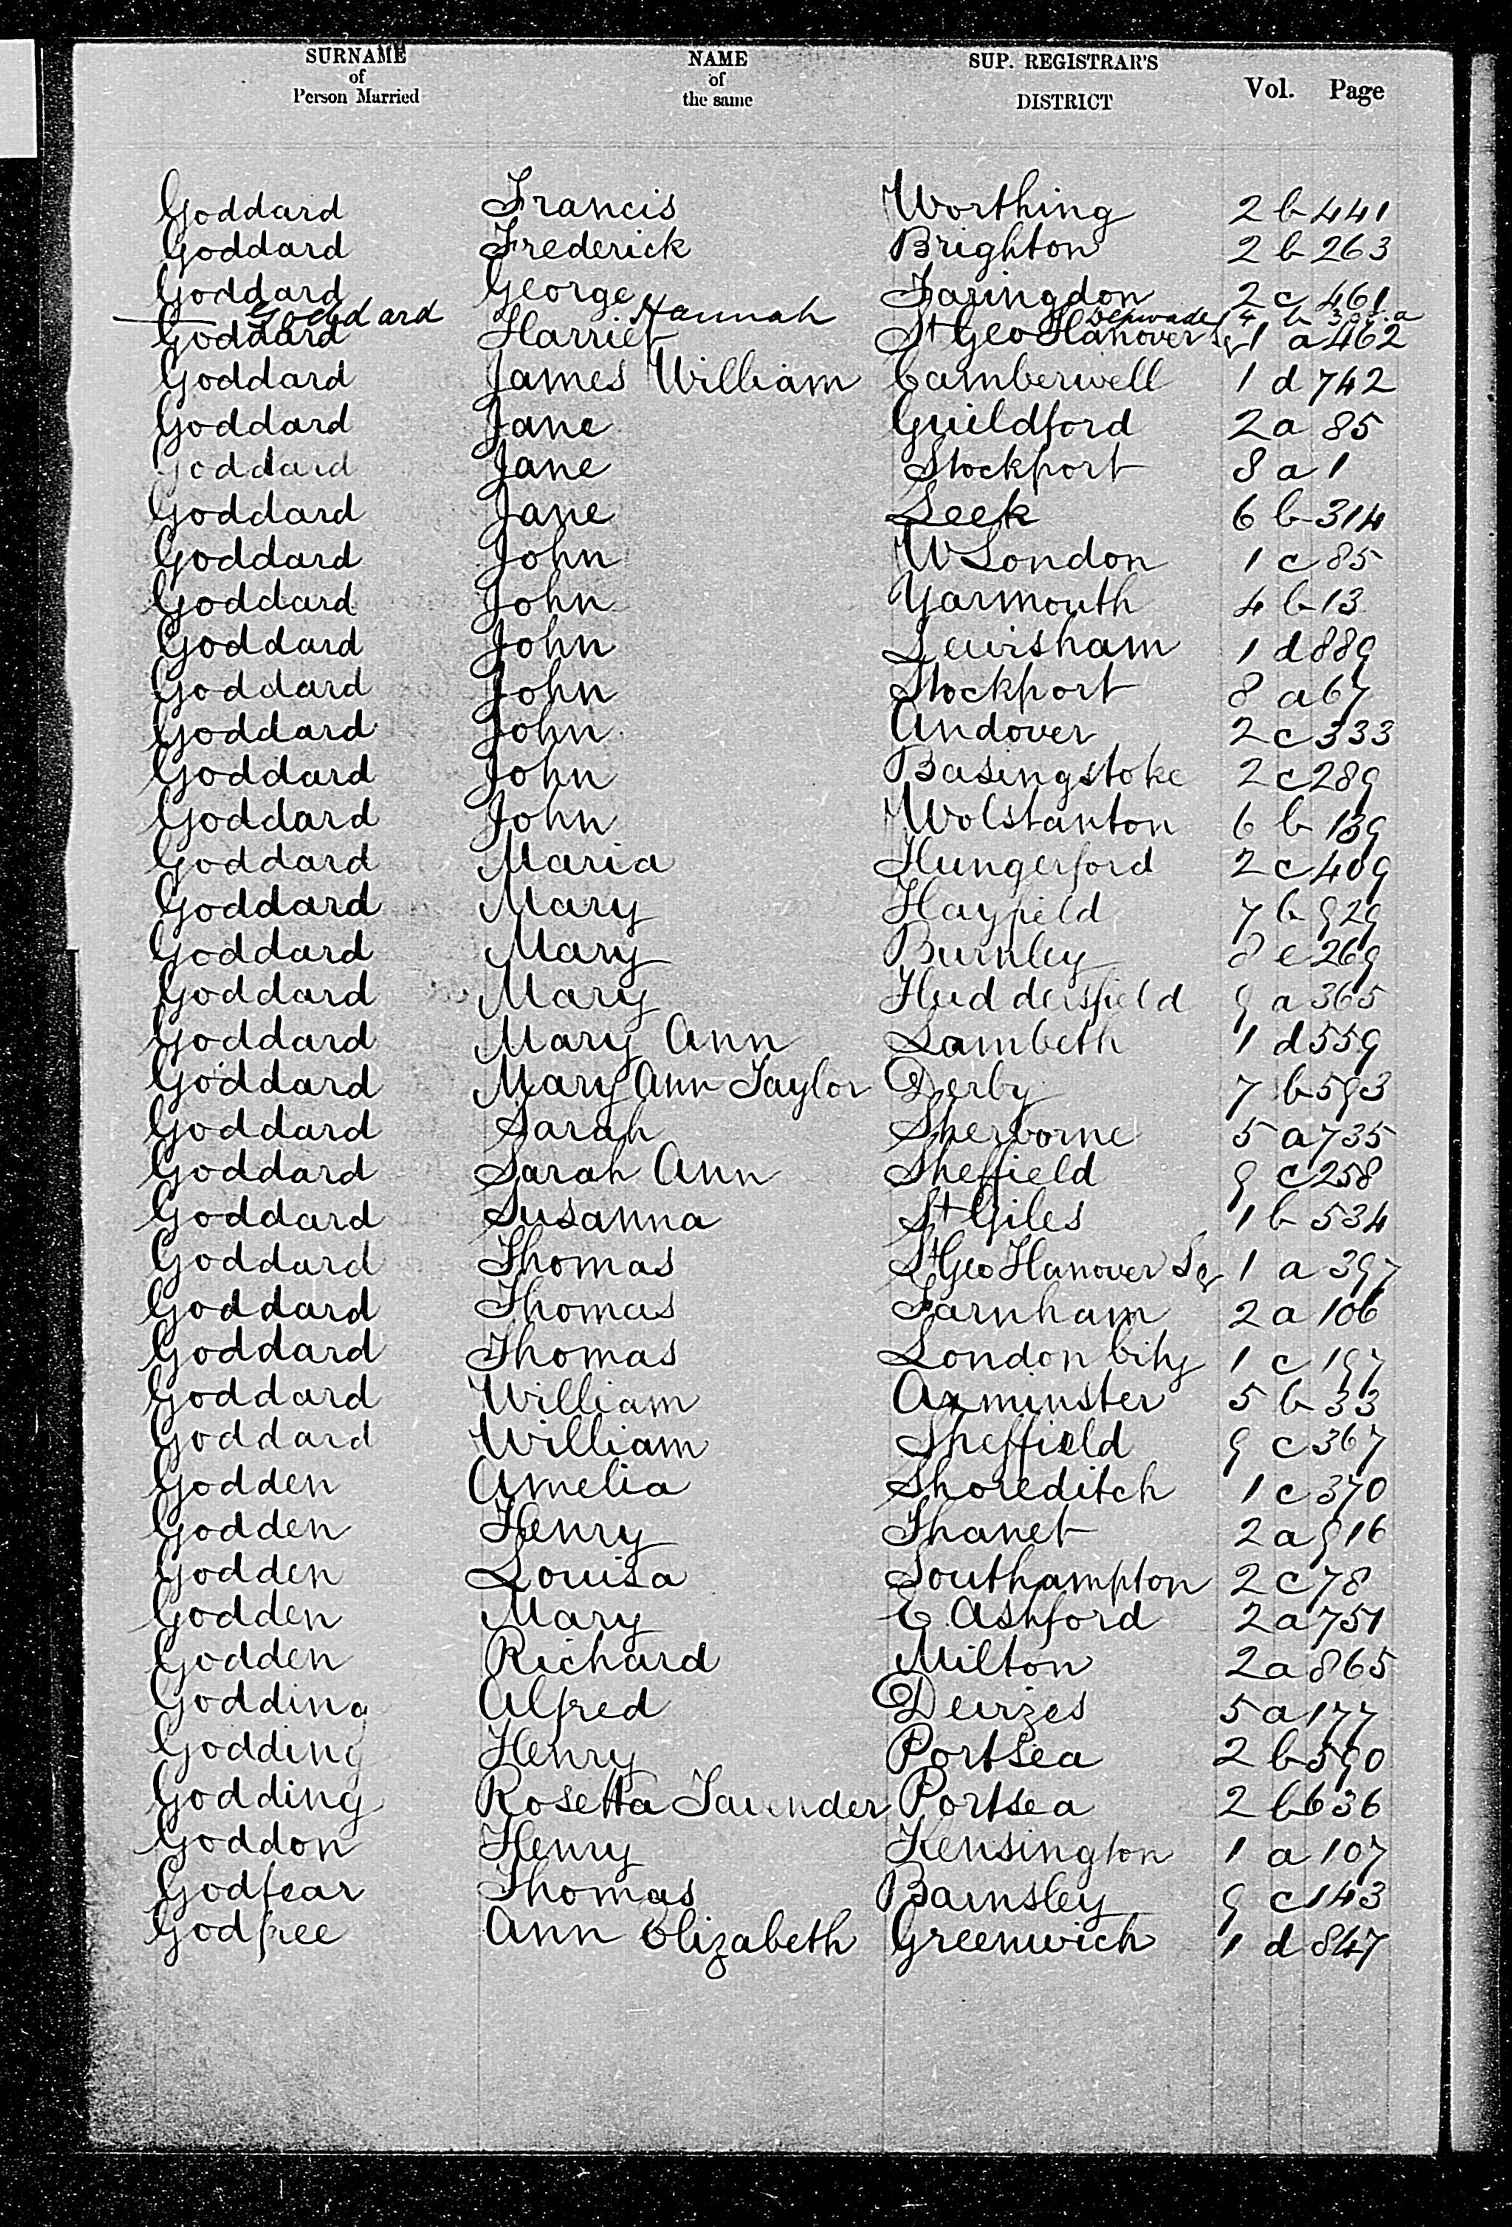 SURNAME of Person Married NAME of the same SUP. REGISTRAR'S DISTRICT Vol. Page
Goddard Francis Worthing 2 b 441
Goddard Frederick Brighton 2 b 263
Goddard George Faringdon 2 c 461
Goddard Hannah Depwade 4 b
Goddard Harriet St Geo Hanover Sq 1 a 462
Goddard James William Camberwell 1 d 742
Goddard Jane Guildford 2 a 85
Goddard Jane Stockport 8 a 1
Goddard Jane Leek 6 b 314
Goddard John W London 1 c 85
Goddard John Yarmouth 4 b 13
Goddard John Lewisham 1 d 889
Goddard John Stockport 8 a 67
Goddard John Andover 2 c 333
Goddard John Basingstoke 2 c 289
Goddard John Wolstanton 6 b 139
Goddard Maria Hungerford 2 c 409
Goddard Mary Hayfield 7 b 929
Goddard Mary Burnley 8 e 269
Goddard Mary Huddersfield 9 a 365
Goddard Mary Ann Lambeth 1 d 559
Goddard Mary Ann Taylor Derby 7 b 593
Goddard Sarah Sherborne 5 a 735
Goddard Sarah Ann Sheffield 9 c 258
Goddard Susanna St Giles 1 b 534
Goddard Thomas St Geo Hanover Sq 1 a 397
Goddard Thomas Farnham 2 a 106
Goddard Thomas London City 1 c 197
Goddard William Axminster 5 b 33
Goddard William Sheffield 9 c 367
Godden Amelia Shoreditch 1 c 370
Godden Henry Thanet 2 a 916
Godden Louisa Southampton 2 c 78
Godden Mary E. Ashford 2 a 751
Godden Richard Milton 2 a 865
Godding Alfred Devizes 5 a 177
Godding Henry Portsea 2 b 590
Godding Rosetta Lavender Portsea 2 b 636
Goddon Henry Kensington 1 a 107
Godfear Thomas Barnsley 9 c 143
Godfree Ann Elizabeth Greenwich 1 d 847